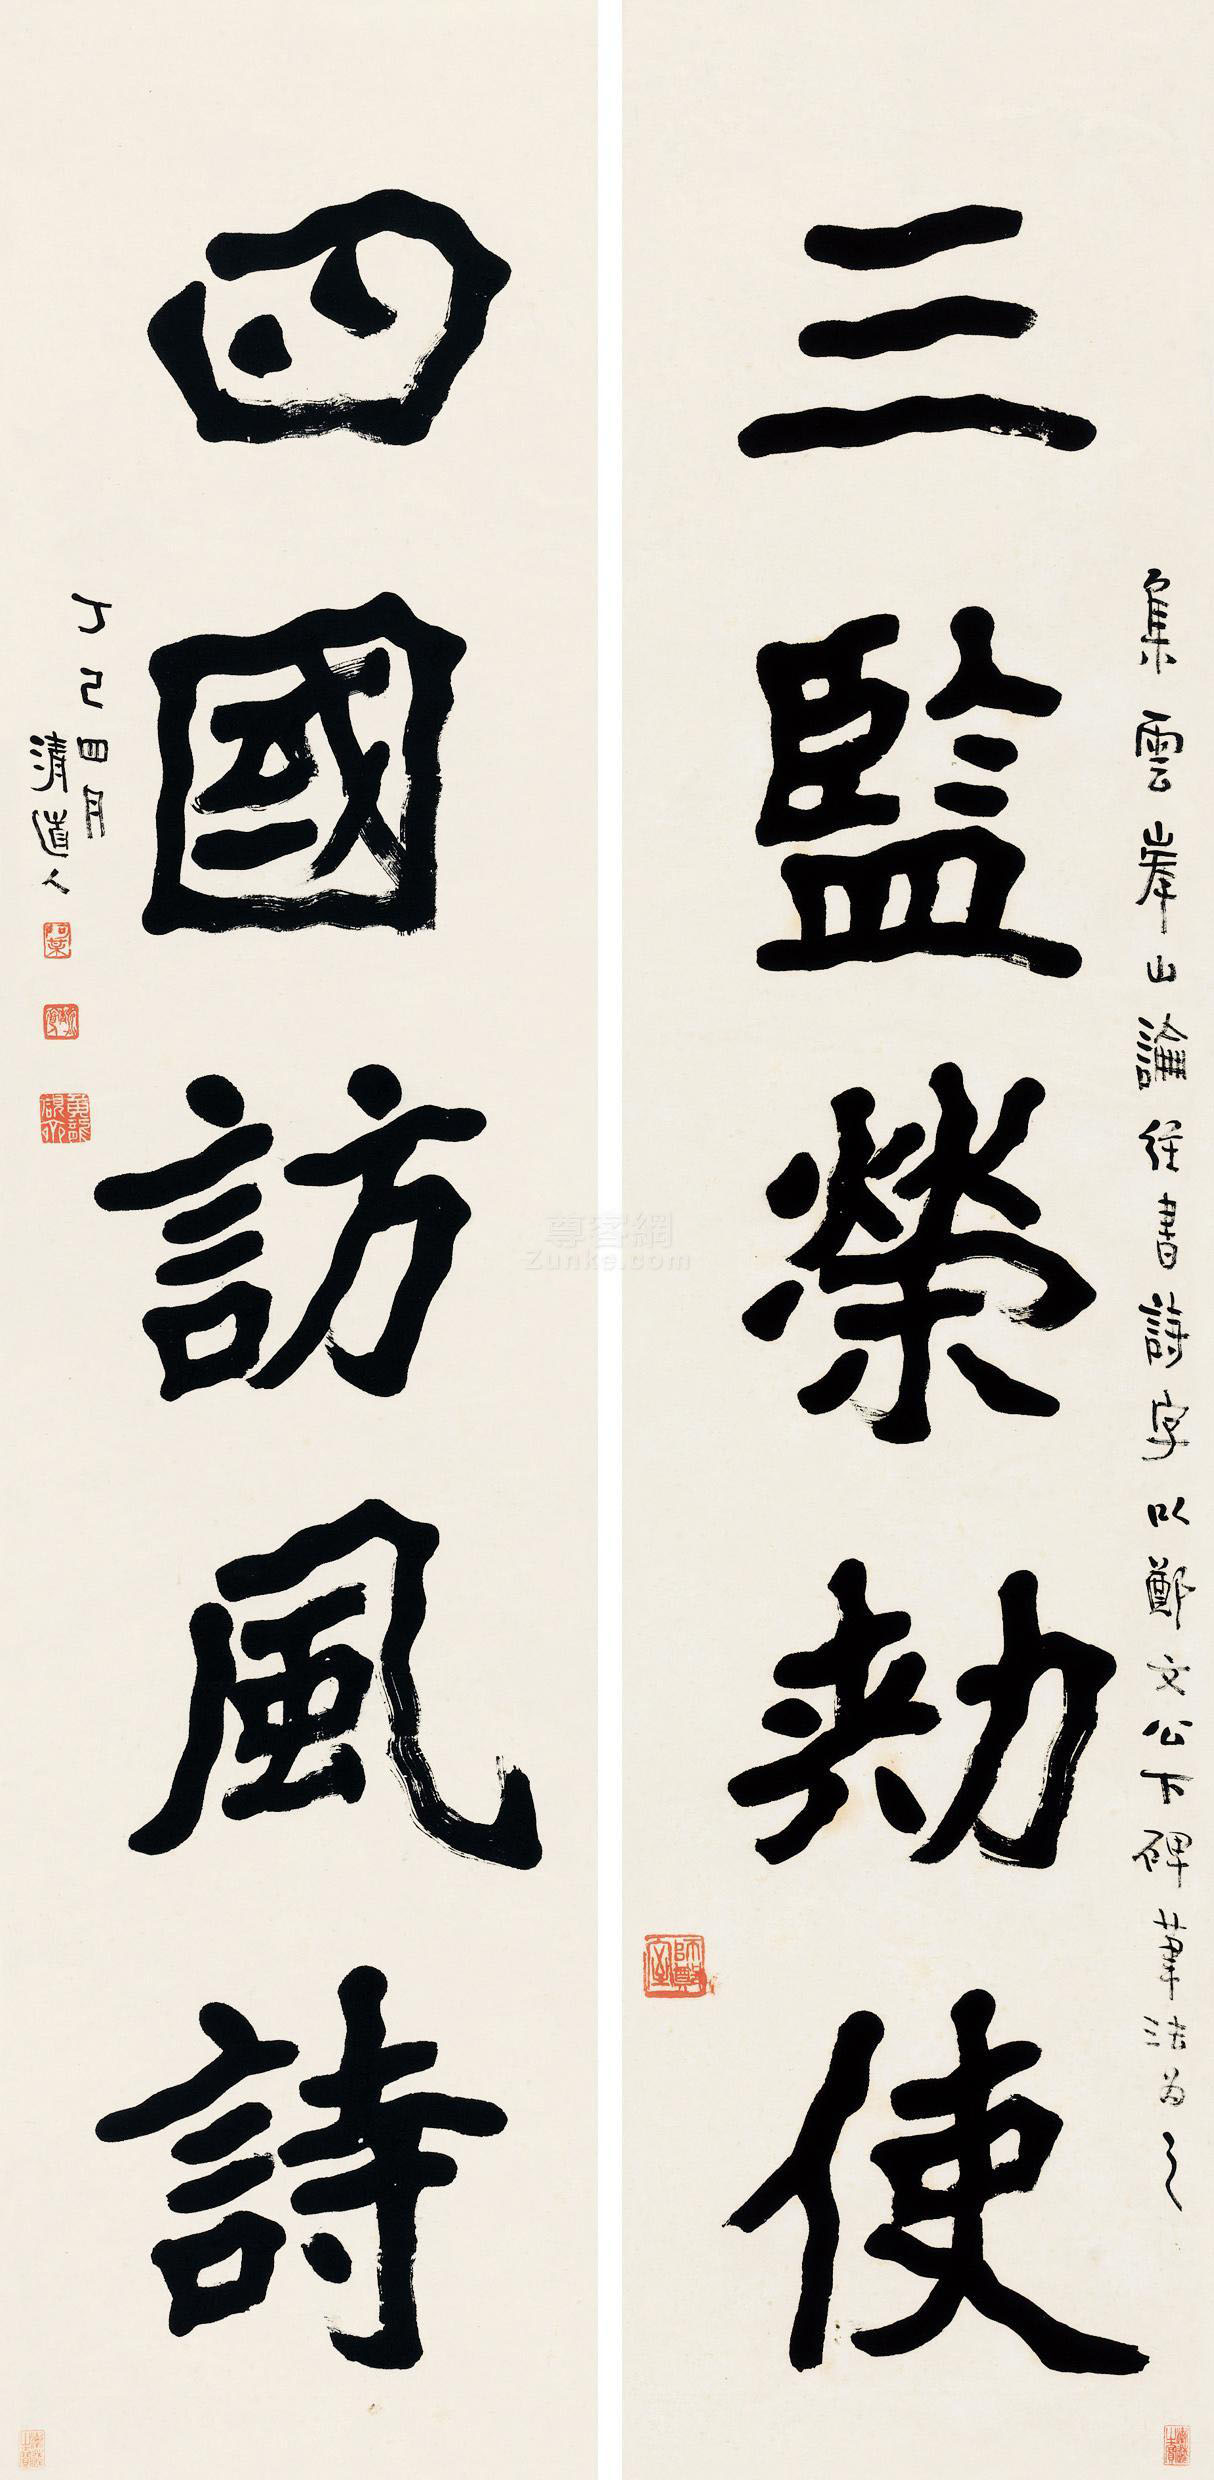 三監榮劫使
集雲峯山論經書詩字以鄭文公下碑筆法為之
四國訪風詩
丁巳四月
清道人
黃龍硯齋
尊客網
Zunke.com